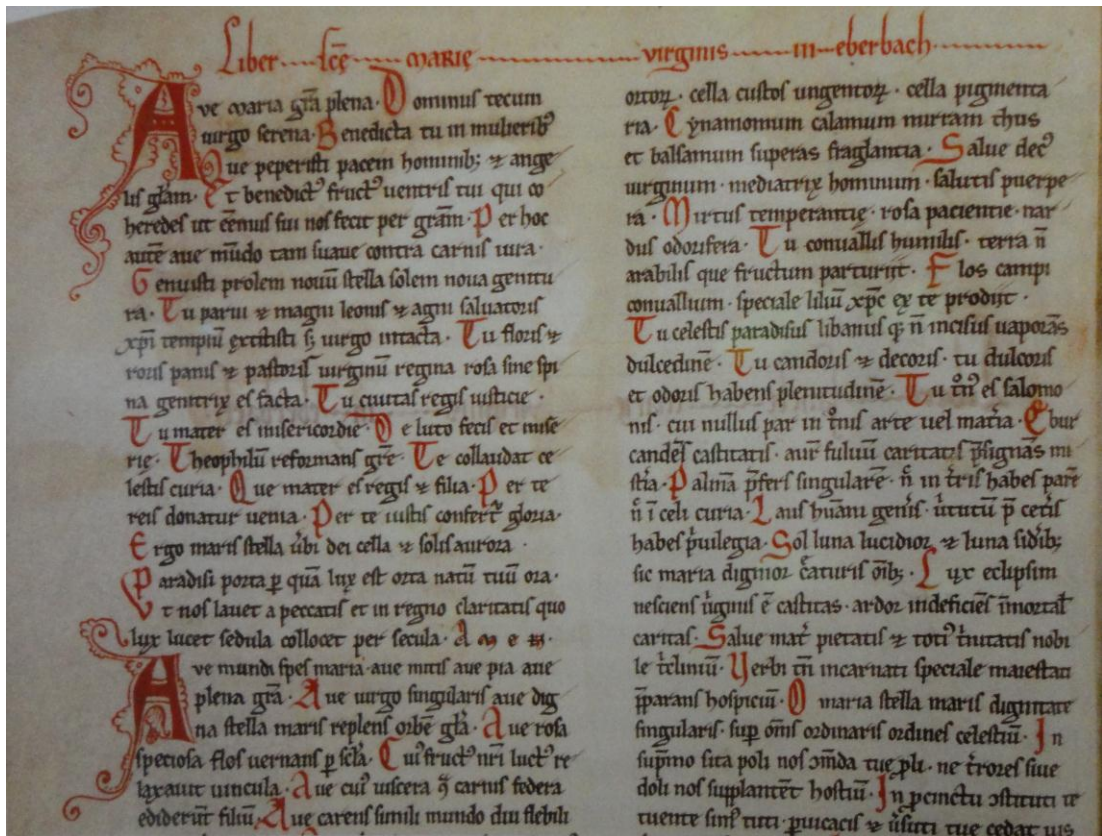 Liber scē marię virginis in eberbach
Ave maria grā plena · Dominus tecum
uirgo serena · Benedicta tu in mulieribꝰ
Que peperisti pacem hominib; ⁊ ange
lis glām · Et benedictꝰ fructꝰ uentris tui qui co
heredes ut eēmus sui nos fecit per grām · Per hoc
autē aue mūdo tam suaue contra carnis iura ·
Genuisti prolem nouū stella solem noua genitu
ra · Tu parui ⁊ magni leonis ⁊ agni saluatoris
xpī templū extitisti sꝫ uirgo intacta · Tu floris ⁊
roris panis ⁊ pastoris uirginū regina rosa sine spi
na genitrix es facta · Tu ciuitas regis iusticie ·
Tu mater es misericordie · De luto fecis et mise
rie · Theophilū reformans grē · Te collaudat ce
lestis curia · Que mater es regis ⁊ filia · Per te
reis donatur uenia · Per te iustis confert᷑ gloria ·
Ergo maris stella ūbi dei cella ⁊ solis aurora ·
Paradisi porta ꝑ quā lux est orta natū tuū ora ·
Vt nos lauet a peccatis et in regno claritatis quo
lux lucet sedula collocet per secula · A m e n ·
Ave mundi spes maria · aue mitis aue pia aue
plena grā · Aue uirgo singularis aue dig
na stella maris replens orbē glā · Aue rosa
speciosa flos uernans ꝑ scłā · Cuiꝰ fructꝰ nrī luctꝰ re
laxauit uincula · Aue cuiꝰ uiscera ꝙ̄ carnis federa
ediderūt filiū · Aue carens simili mundo diu flebili
ortoꝝ · cella custos ungentoꝝ · cella pigmenta
ria · Cynamomum calamum mirram thus
et balsamum superas fraglantia · Salue decꝰ
uirginum · mediatrix hominum · salutis puerpe
ra · Mirtus temperantię · rosa pacientie · nar
dus odorifera · Tu conuallis humilis · terra n̄
arabilis que fructum parturijt · Flos campi
conuallium · speciale liliū xp̄c ex te prodijt ·
Tu celestis paradisus libanus qꝫ n̄ incisus uaporās
dulcedinē · Tu candoris ⁊ decoris · tu dulcoris
et odoris habens plenitudinē · Tu t̊n̄ es salomo
nis · cui nullus par in t̊nis arte uel mat̾ia · Ebur
candēs castitatis · aur̄ fuluū caritatis p̄signās mi
st̾ia · Palmā p̄fers singularē · n̄ in t̾ris habes parē
n̄ ī celi curia · Laus hūani gen̾is · ūtutū p̄ cet̾is
habes p̾uilegia · Sol luna lucidior ⁊ luna sid̾ib;
sic maria dignior c̾aturis ōib; · Lux eclipsim
nesciens ūginis ē castitas · ardor indeficiēs īmortal̄
caritas · Salue mat̾ pietatis ⁊ totiꝰ t̾nitatis nobi
le t̾cliniū · Verbi tn̄ incarnati speciale maiestati
p̄parans hospiciū · O maria stella maris dignitate
singularis · suꝑ oms̄ ordinaris ordines celestiū · In
sup̾mo sita poli nos ꝯm̄da tue ꝓli · ne t̾rores siue
doli nos supplantēt hostiū · In ꝓcinctu ꝯstituti te
tuente sim̾ tuti · ꝑuicacis ⁊ ūsuti tue cedat uis